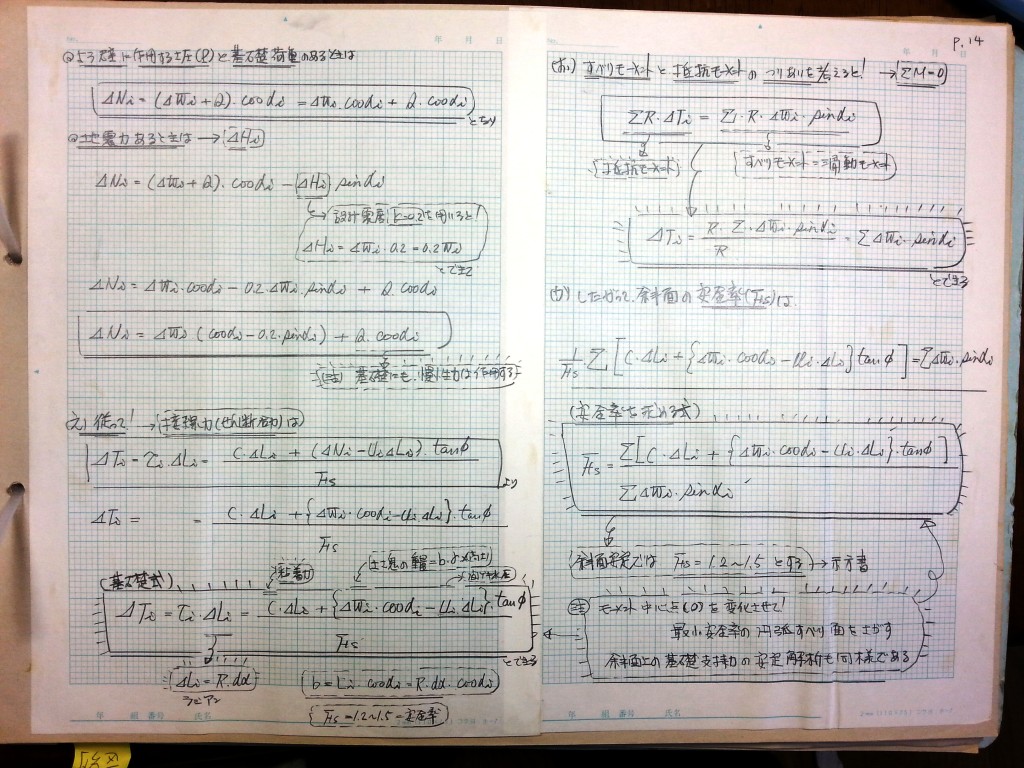 ⓐよう壁に作用する土圧(P)と基礎荷重のあるときは
ΔNi = (ΔWi + Q)・cosαi = ΔWi・cosαi + Q・cosαi
となり
ⓐ地震力あるときは → ΔHi
ΔNi = (ΔWi + Q)・cosαi - ΔHi sinαi
設計震度 k=0.2を用いると!
ΔHi = ΔWi・0.2 = 0.2Wi
とできて
ΔNi = ΔWi・cosαi - 0.2・ΔWi・sinαi + Q・cosαi
ΔNi = ΔWi (cosαi - 0.2・sinαi) + Q・cosαi
(注) 基礎にも、慣性力は作用する
(え) 従って! → (せん断応力)は
ΔTi = τi・ΔLi = C・ΔLi + (ΔNi - UiΔLi)・tanφ / Fs
より
ΔTi = = C・ΔLi + {ΔWi・cosαi - Ui・ΔLi}・tanφ / Fs
(基礎式)
粘着力
土塊の重量 = b・γ×(高さ)
間ゲキ水圧
ΔTi = τi・ΔLi = C・ΔLi + {ΔWi・cosαi - Ui・ΔLi} tanφ / Fs
とできる
ΔLi = R・dα
ラジアン
b = Li・cosαi = R・dα・cosαi
Fs = 1.2~1.5 - 安全率
年 組 番号 氏名
P.14
年 月 日
(お) すべりモーメントと抵抗モーメントのつりあいを考えると! → (ΣM=0)
ΣR・ΔTi = Σ・R・ΔWi・sinαi
抵抗モーメント
すべりモーメント = 滑動モーメント
ΔTi = R・Σ・ΔWi・sinαi / R = ΣΔWi・sinαi
とできる
(か) したがって、斜面の安全率(Fs)は、
1/Fs Σ [C・ΔLi + {ΔWi・cosαi - Ui・ΔLi} tanφ] = ΣΔWi・sinαi
(安全率を求める式)
Fs = Σ[C・ΔLi + {ΔWi・cosαi - Ui・ΔLi}・tanφ] / ΣΔWi・sinαi
斜面安定では Fs = 1.2~1.5 とする → 示方書
(注) モーメント中心点(O)を変化させて!
最小安全率の円弧すべり面をさがす
斜面上の基礎支持力の安定解析も同様である
年 組 番号 氏名